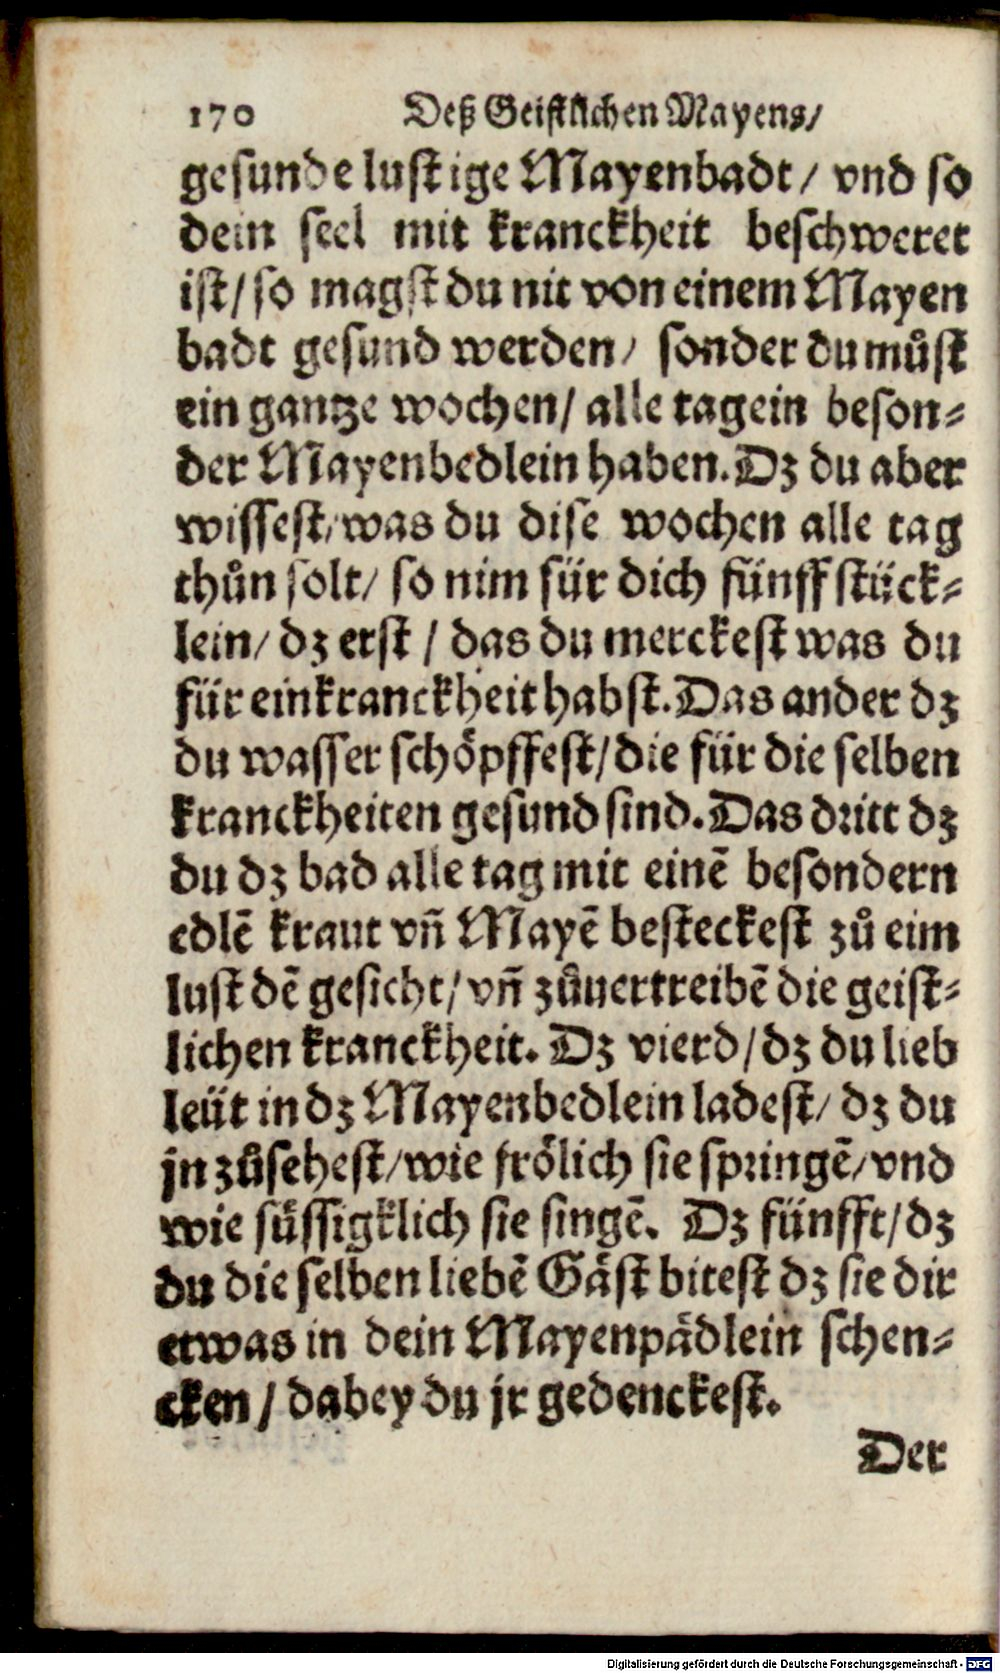 170 Deß Geistlichen Mayens/
gesunde lustige Mayenbadt/ vnd so
dein seel mit kranckheit beschweret
ist/ so magst du nit von einem Mayen
badt gesund werden/ sonder du můst
ein gantze wochen/ alle tag ein beson⸗
der Mayenbedlein haben. Dz du aber
wissest/ was du dise wochen alle tag
thůn solt/ so nim für dich fünff stück⸗
lein/ dz erst / das du merckest was du
für ein kranckheit habst. Das ander dz
du wasser schöpffest/ die für die selben
kranckheiten gesund sind. Das dritt dz
du dz bad alle tag mit einē besondern
edlē kraut vñ Mayē besteckest zů eim
lust dē gesicht/ vñ zůuertreibē die geist⸗
lichen kranckheit. Dz vierd/ dz du lieb
leüt in dz Mayenbedlein ladest/ dz du
jn zůsehest/ wie frölich sie springē/ vnd
wie süssigklich sie singē. Dz fünfft/ dz
du die selben liebē Gäst bitest dz sie dir
etwas in dein Mayenpädlein schen⸗
cken / dabey du jr gedenckest.
Der
Digitalisierung gefördert durch die Deutsche Forschungsgemeinschaft - DFG